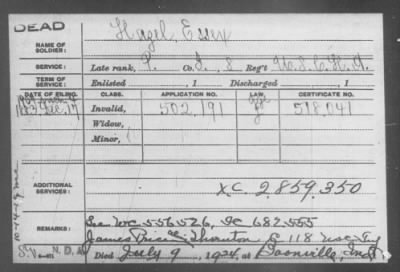 DEAD
NAME OF SOLDIER: Hazel, Essex
SERVICE: Late rank, P. Co. I, 8 Reg't U.S.C.H.A.
TERM OF SERVICE: Enlisted , 1 Discharged , 1
DATE OF FILING. CLASS. APPLICATION NO. LAW. CERTIFICATE NO.
Invalid, 502,191 518,041
Widow,
Minor,
ADDITIONAL SERVICES: XC 2,859,350
REMARKS: See WC 556526, IC 682,555
James Price Thornton 118
Died July 9, 1924, at Boonville, Ind